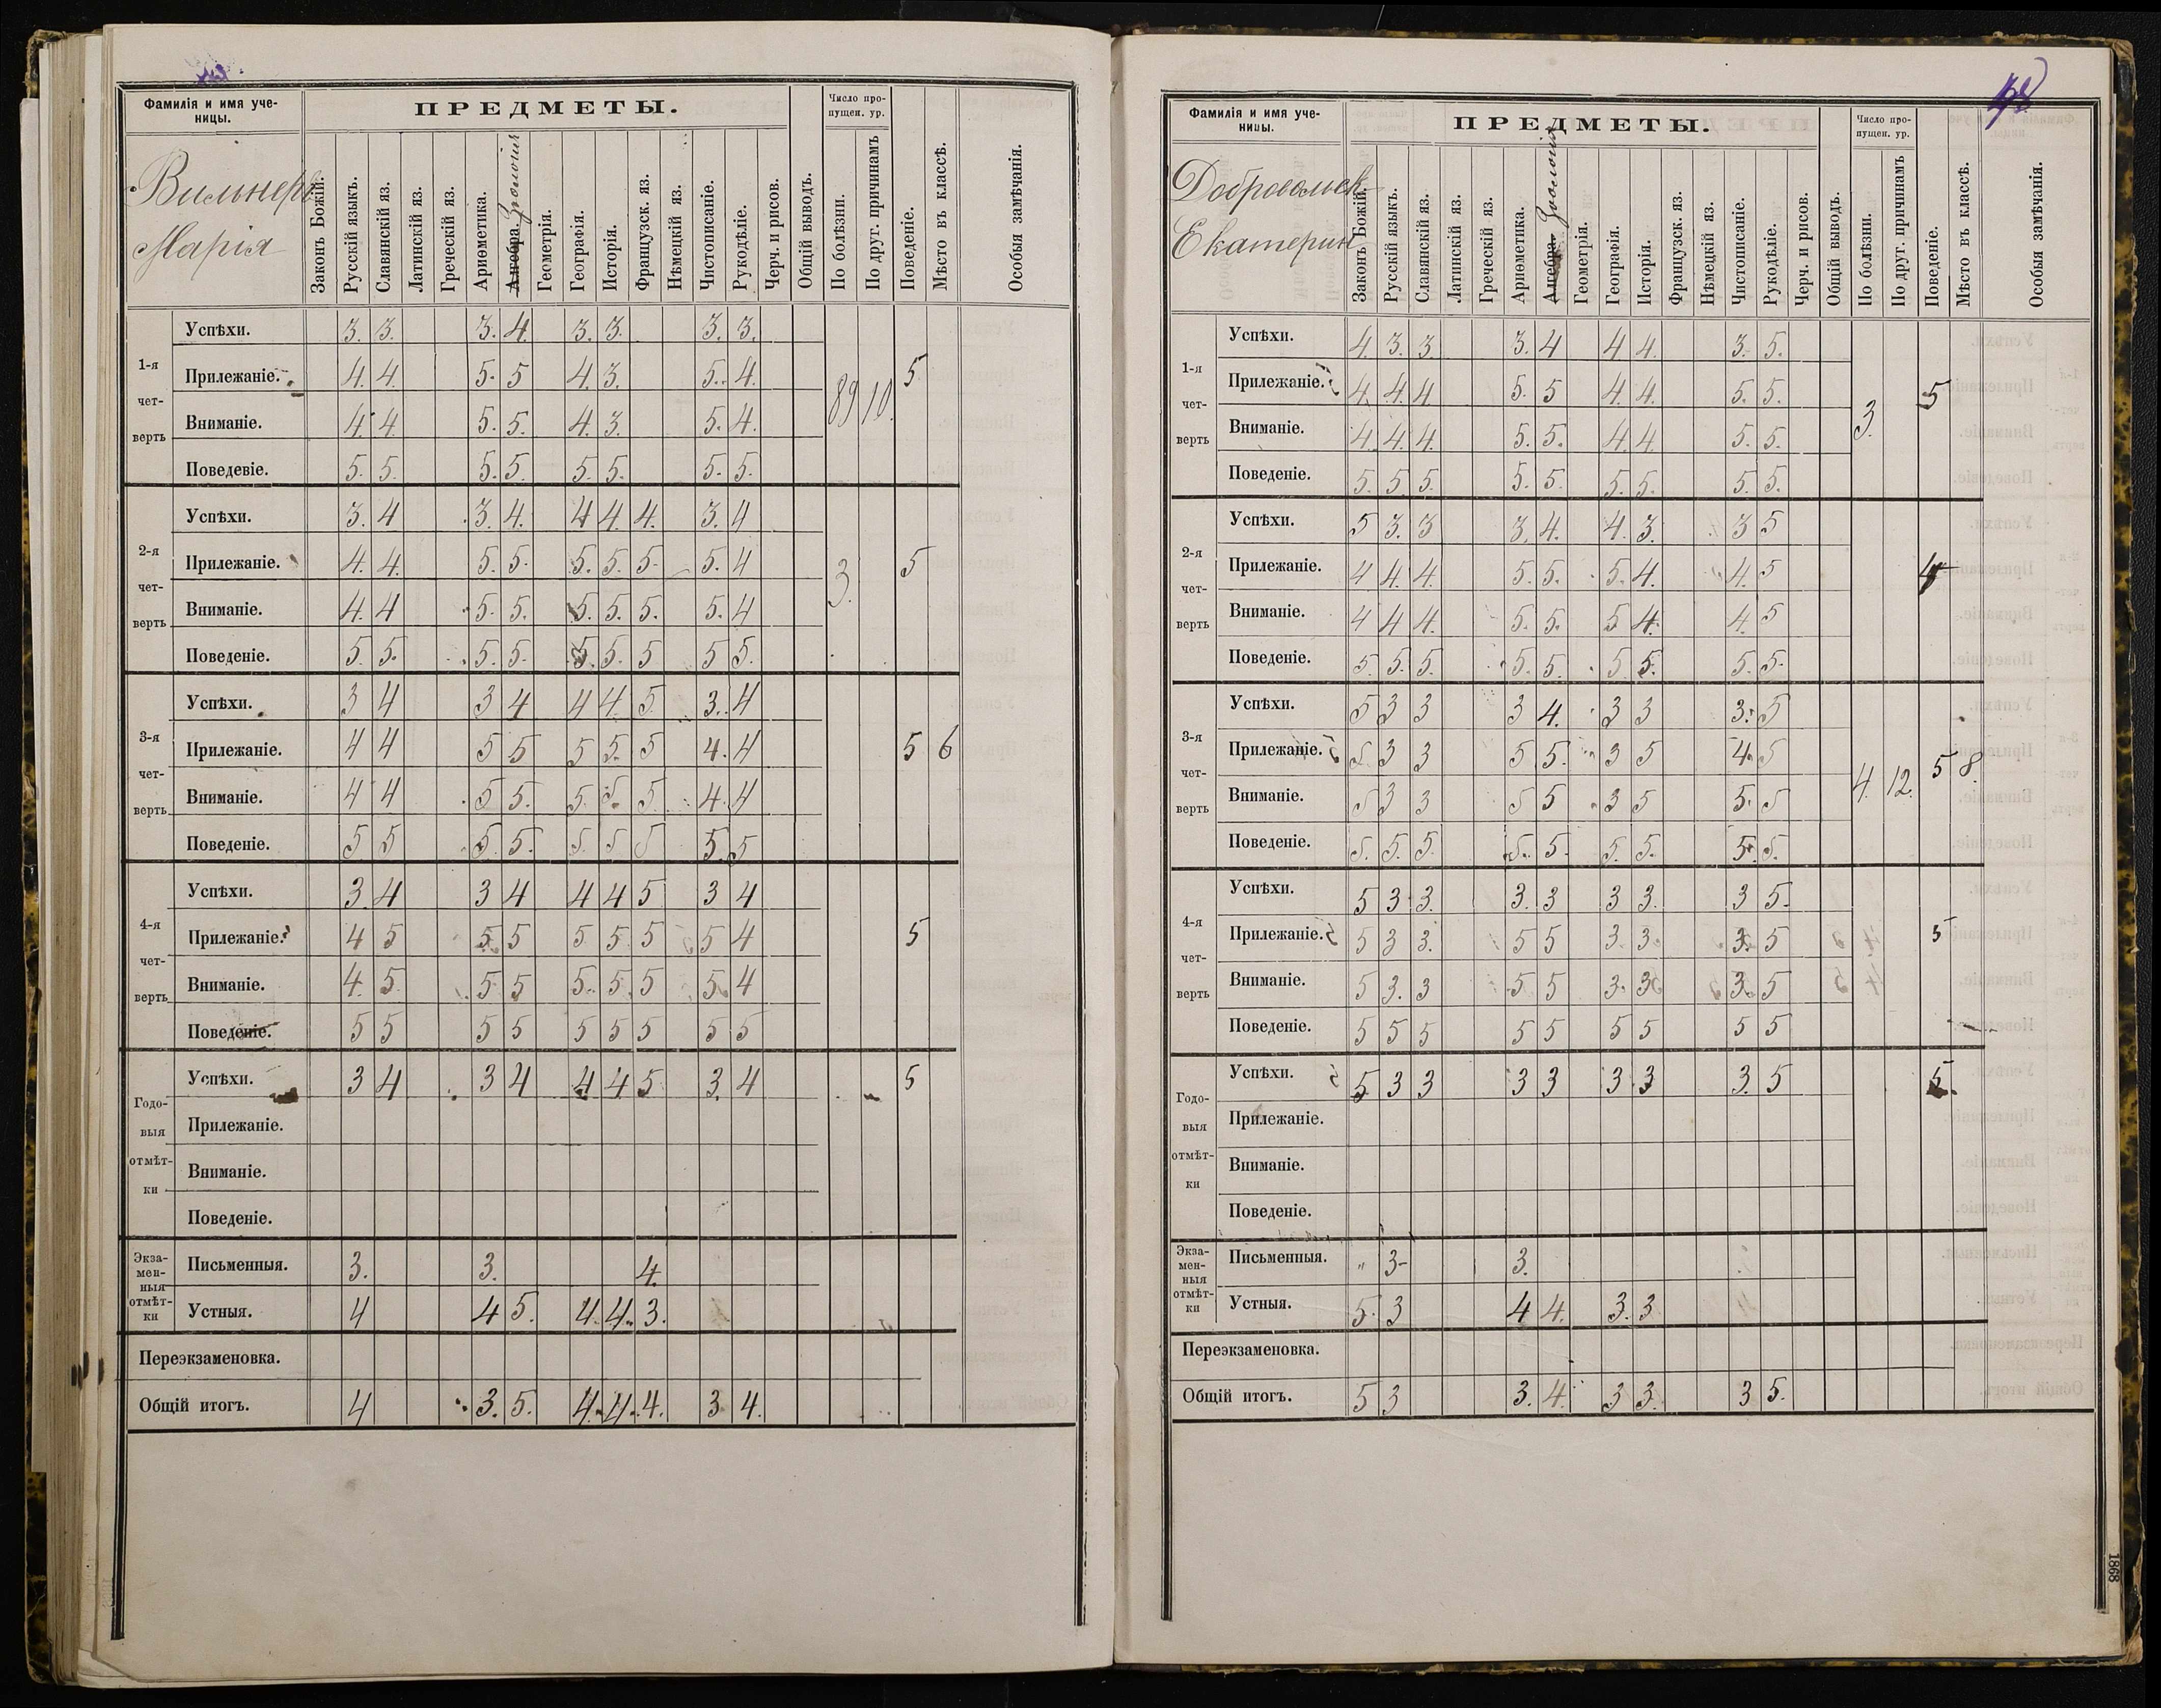 Фамилія и имя уче-
ницы.
ПРЕДМЕТЫ.
Число про-
пущен. ур.
Вильнеръ
Марія
Законъ Божій.
Русскій языкъ.
Славянскій яз.
Латинскій яз.
Греческій яз.
Ариѳметика.
Алгебра. Зоологія
Геометрія.
Географія.
Исторія.
Французск. яз.
Нѣмецкій яз.
Чистописаніе.
Рукодѣліе.
Черч. и рисов.
Общій выводъ.
По болѣзни.
По друг. причинамъ
Поведеніе.
Мѣсто въ классѣ.
Особыя замѣчанія.
1-я чет-верть
Успѣхи. 3. 3. 3. 4. 3. 3. 3. 3.
Прилежаніе. 4. 4. 5. 5 4. 3. 5. 4. 89 10. 5
Вниманіе. 4. 4. 5. 5. 4. 3. 5. 4.
Поведевіе. 5. 5. 5. 5. 5. 5. 5. 5.
2-я чет-верть
Успѣхи. 3. 4 3. 4. 4 4. 4. 3. 4
Прилежаніе. 4. 4. 5. 5. 5. 5. 5. 5. 4 3. 5
Вниманіе. 4. 4 5. 5. 5. 5. 5. 5. 4
Поведеніе. 5. 5. 5. 5. 5. 5. 5 5 5.
3-я чет-верть
Успѣхи. 3 4 3 4 4 4. 5 3. 4
Прилежаніе. 4 4 5 5 5 5. 5 4. 4 5 6
Вниманіе. 4 4 5 5. 5. 5. 5. 4. 4
Поведеніе. 5 5 5. 5. 5. 5. 5 5. 5
4-я чет-верть
Успѣхи. 3. 4 3 4 4 4 5 3 4
Прилежаніе. 4 5 5 5 5 5 5 5 4 5
Вниманіе. 4. 5 5 5 5. 5. 5 5 4
Поведеніе. 5 5 5 5 5 5 5 5 5
Годо-выя отмѣт-ки
Успѣхи. 3 4 3 4 4 4 5 3. 4 5
Прилежаніе.
Вниманіе.
Поведеніе.
Экза-мен-ныя отмѣт-ки
Письменныя. 3. 3. 4.
Устныя. 4 4 5. 4. 4. 3.
Переэкзаменовка.
Общій итогъ. 4 3. 5. 4. 4. 4. 3 4.
Фамилія и имя уче-
ницы.
ПРЕДМЕТЫ.
Число про-
пущен. ур.
Добровольск
Екатерин
Законъ Божій.
Русскій языкъ.
Славянскій яз.
Латинскій яз.
Греческій яз.
Ариѳметика.
Алгебра. Зоологія
Геометрія.
Географія.
Исторія.
Французск. яз.
Нѣмецкій яз.
Чистописаніе.
Рукодѣліе.
Черч. и рисов.
Общій выводъ.
По болѣзни.
По друг. причинамъ
Поведеніе.
Мѣсто въ классѣ.
Особыя замѣчанія.
1-я чет-верть
Успѣхи. 4. 3. 3. 3. 4 4 4. 3. 5.
Прилежаніе. 4. 4. 4. 5. 5 4. 4. 5. 5. 3. 5
Вниманіе. 4. 4. 4. 5. 5. 4 4. 5. 5.
Поведеніе. 5. 5. 5. 5. 5. 5. 5. 5. 5.
2-я чет-верть
Успѣхи. 5 3. 3 3. 4. 4. 3. 3 5
Прилежаніе. 4 4. 4. 5. 5. 5. 4. 4. 5
Вниманіе. 4 4 4. 5. 5. 5 4. 4. 5
Поведеніе. 5. 5. 5. 5. 5. 5. 5. 5. 5.
3-я чет-верть
Успѣхи. 5 3 3 3 4. 3 3 3. 5
Прилежаніе. 5. 3 3 5 5. 3 5 4. 5 4. 12. 5 8.
Вниманіе. 5 3 3 5 5 3 5 5. 5
Поведеніе. 5. 5. 5. 5. 5. 5. 5. 5. 5.
4-я чет-верть
Успѣхи. 5 3 3. 3. 3 3 3. 3 5.
Прилежаніе. 5 3 3. 5 5 3. 3. 3. 5 5
Вниманіе. 5 3. 3 5 5 3. 3 3. 5
Поведеніе. 5 5 5 5 5 5 5 5 5
Годо-выя отмѣт-ки
Успѣхи. 5 3 3 3 3 3 3 3. 5 5.
Прилежаніе.
Вниманіе.
Поведеніе.
Экза-мен-ныя отмѣт-ки
Письменныя. " 3- 3.
Устныя. 5. 3 4 4. 3. 3
Переэкзаменовка.
Общій итогъ. 5 3 3. 4. 3 3. 3 5.
1868